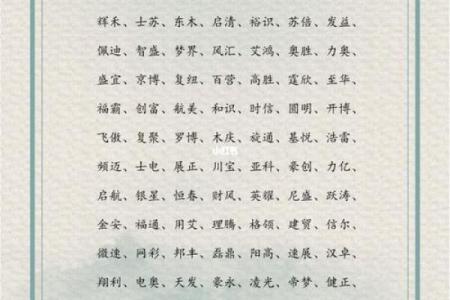 辉禾、士苏、东木、启清、裕识、苏倍、发益、
佩迪、智盛、梦界、风汇、艾鸿、奥胜、力奥、
盛宜、京博、复纽、百营、高胜、霆欣、至华、
福霸、创富、航美、和识、时信、圆明、开博、
飞傲、复聚、罗博、木庆、旋通、基悦、浩雷、
频迈、士电、展正、川宝、亚科、豪创、力亿、
启航、银星、恒春、财风、英耀、尼盛、跃涛、
金安、福通、用艾、理腾、格领、建贸、信尔、
微速、网彩、邦丰、磊鼎、阳高、速展、汉卓、
翔利、电奥、天发、豪永、凌光、帝梦、健正、